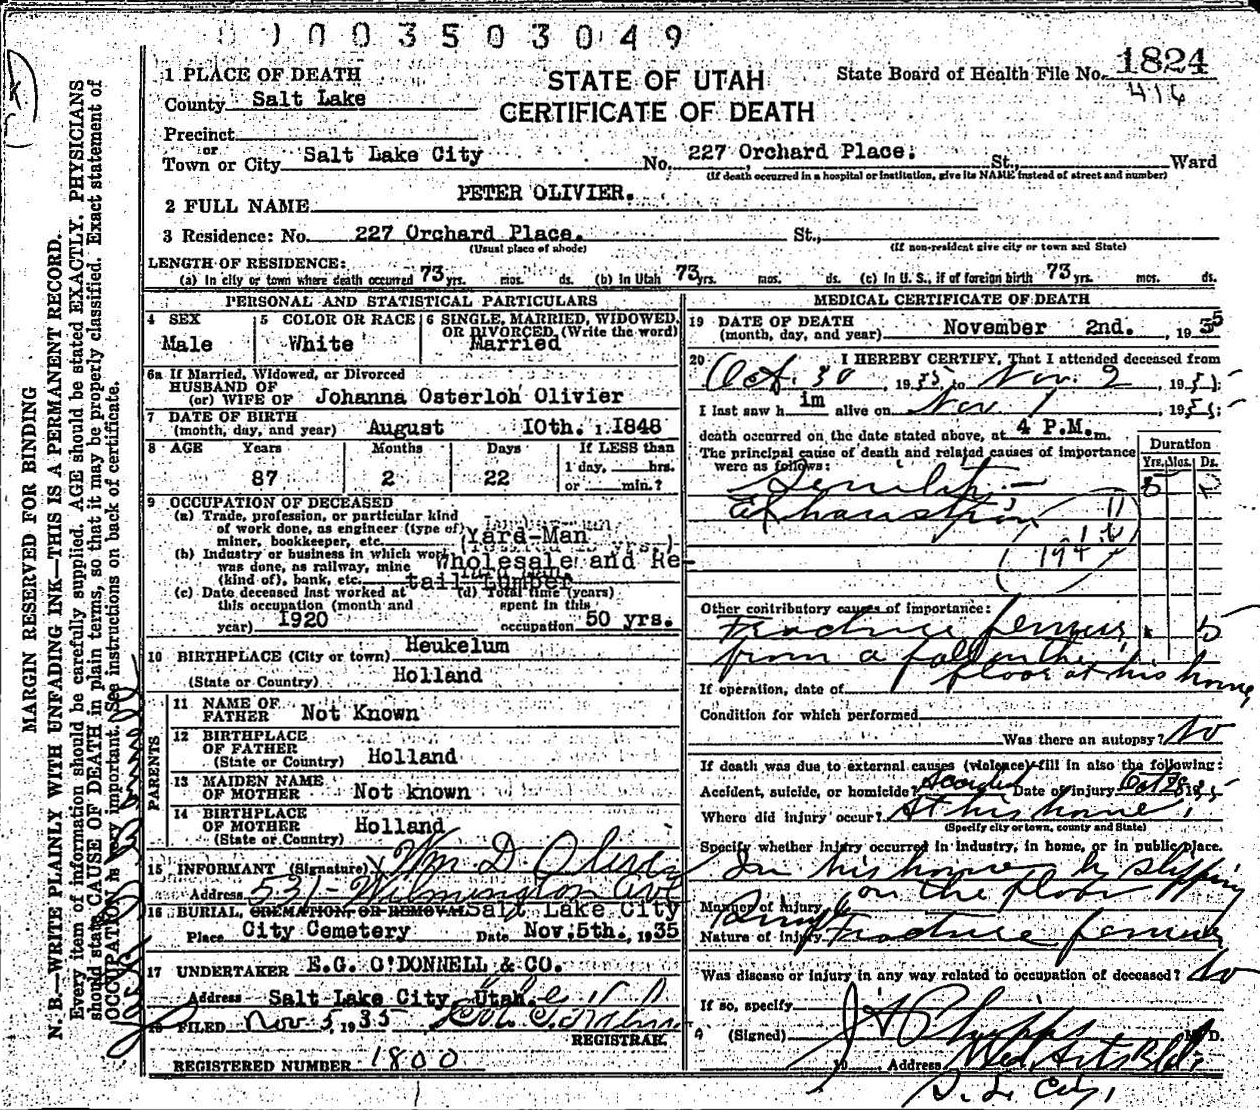 0003503049
1 PLACE OF DEATH
STATE OF UTAH
CERTIFICATE OF DEATH
State Board of Health File No. 1824
416
County Salt Lake
Precinct
or
Town or City Salt Lake City No. 227 Orchard Place. St., Ward
(If death occurred in a hospital or institution, give its NAME instead of street and number)
2 FULL NAME PETER OLIVIER.
3 Residence: No. 227 Orchard Place. St.,
(Usual place of abode) (If non-resident give city or town and State)
LENGTH OF RESIDENCE:
(a) In city or town where death occurred 73 yrs. mos. ds. (b) in Utah 73 yrs. mos. ds. (c) In U. S., if of foreign birth 73 yrs. mos. ds.
PERSONAL AND STATISTICAL PARTICULARS
4 SEX
Male
5 COLOR OR RACE
White
6 SINGLE, MARRIED, WIDOWED,
OR DIVORCED, (Write the word)
Married
6a If Married, Widowed, or Divorced
HUSBAND OF
(or) WIFE OF Johanna Osterloh Olivier
7 DATE OF BIRTH
(month, day, and year) August 10th. 1848
8 AGE Years Months Days If LESS than
87 2 22 1 day, hrs.
or min.?
9 OCCUPATION OF DECEASED
(a) Trade, profession, or particular kind
of work done, as engineer (type of)
miner, bookkeeper, etc. Yard-Man
(b) Industry or business in which work
was done, as railway, mine
(kind of), bank, etc. Wholesale and Re-
tail Lumber
(c) Date deceased last worked at
this occupation (month and
year) 1920
(d) Total time (years)
spent in this
occupation 50 yrs.
10 BIRTHPLACE (City or town) Heukelum
(State or Country) Holland
PARENTS
11 NAME OF
FATHER Not Known
12 BIRTHPLACE
OF FATHER
(State or Country) Holland
13 MAIDEN NAME
OF MOTHER Not known
14 BIRTHPLACE
OF MOTHER
(State or Country) Holland
15 INFORMANT (Signature) Wm D. Olivier
Address 531- Wilmington Ave
16 BURIAL, CREMATION, OR REMOVAL Salt Lake City
Place City Cemetery Date Nov. 5th., 1935
17 UNDERTAKER E.G. O'DONNELL & CO.
Address Salt Lake City, Utah.
18 FILED Nov 5, 1935
REGISTRAR.
REGISTERED NUMBER 1800
MEDICAL CERTIFICATE OF DEATH
19 DATE OF DEATH
(month, day, and year) November 2nd. , 1935
20 I HEREBY CERTIFY, That I attended deceased from
Oct. 30, 1935 to Nov. 2, 193
I last saw him alive on Nov 1, 193
death occurred on the date stated above, at 4 P.M. m.
The principal cause of death and related causes of importance
were as follows:
Duration
Yrs. Mos. Ds.
Senility - 5
Exhaustion
Other contributory causes of importance:
Fracture femur 5
from a fall on the
floor at his home
If operation, date of
Condition for which performed
Was there an autopsy? No
If death was due to external causes (violence) fill in also the following:
Accident, suicide, or homicide? Accident Date of injury Oct 28 193
Where did injury occur? At his home
(Specify city or town, county and State)
Specify whether injury occurred in industry, in home, or in public place.
In his home by slipping
on the floor
Manner of injury
Nature of injury Fracture femur
Was disease or injury in any way related to occupation of deceased? No
If so, specify
(Signed) M. D.
Address Med. Arts Bld.
S. L. City,
MARGIN RESERVED FOR BINDING
N. B.—WRITE PLAINLY WITH UNFADING INK—THIS IS A PERMANENT RECORD.
Every item of information should be carefully supplied. AGE should be stated EXACTLY. PHYSICIANS
should state CAUSE OF DEATH in plain terms, so that it may be properly classified. Exact statement of
OCCUPATION is very important. See instructions on back of certificate.